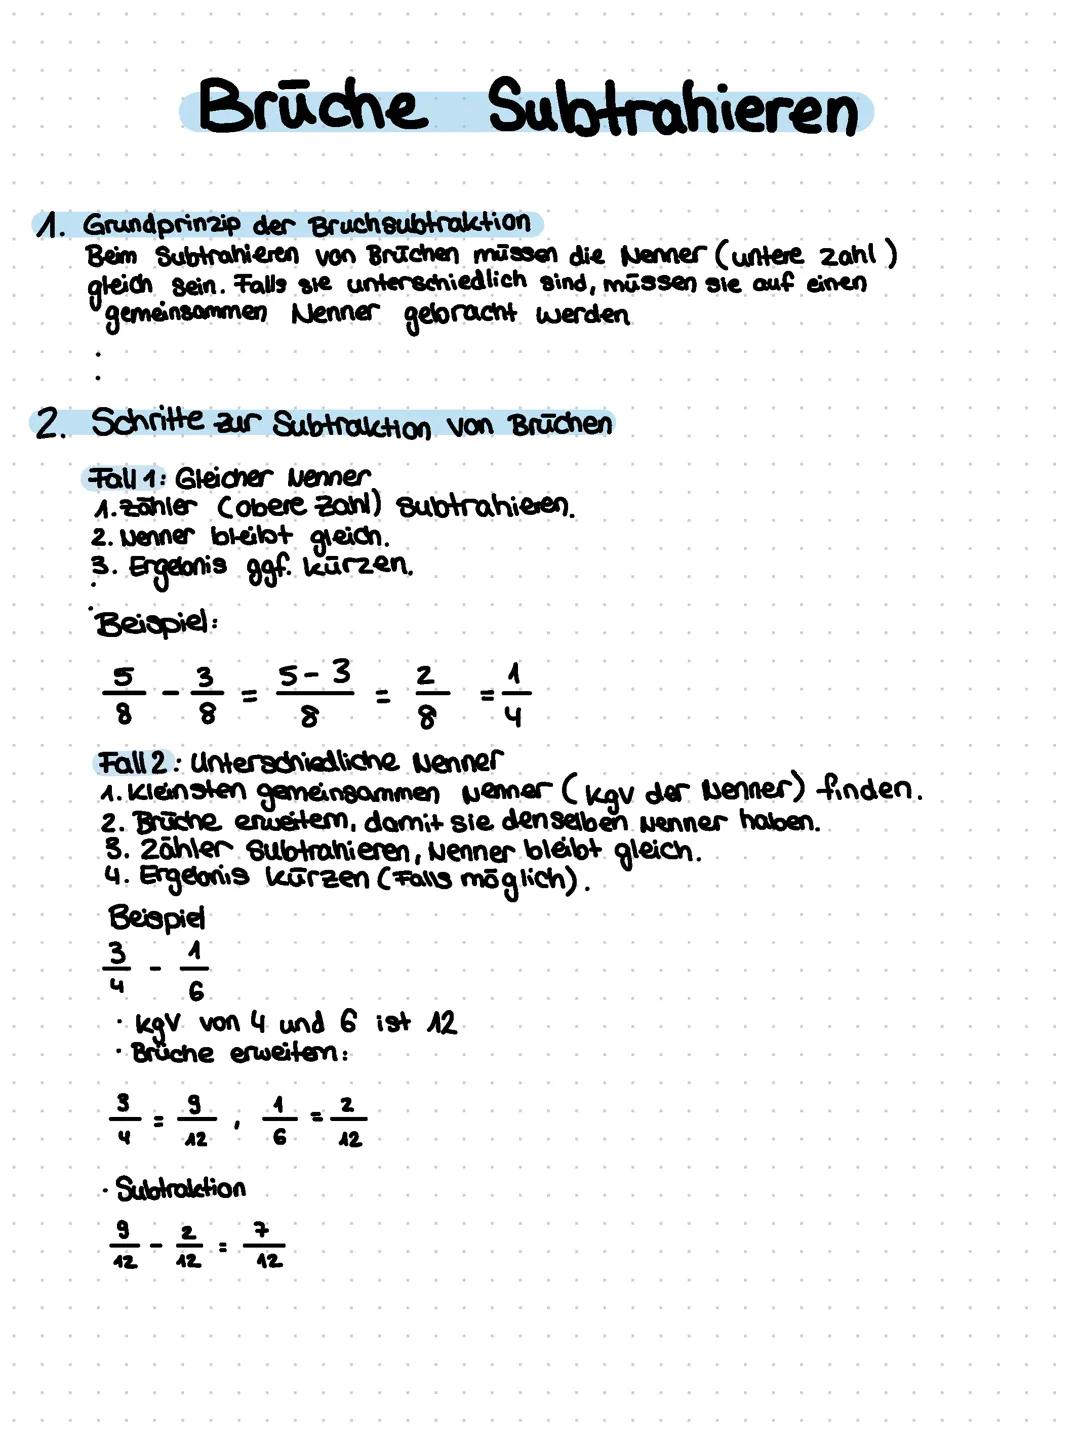 Brüche Subtrahieren
1. Grundprinzip der Bruchsubtraktion
Beim Subtrahieren von Brüchen müssen die Nenner (untere Zahl)
gleich sein. Falls sie unterschiedlich sind, müssen sie auf einen
gemeinsammen Nenner gebracht werden
2. Schritte zur Subtraktion von Brüchen
Fall 1: Gleicher Nenner
1. Zähler (obere Zahl) subtrahieren.
2. Nenner bleibt gleich.
3. Ergebnis ggf. kürzen.
Beispiel:
5/8 - 3/8 = 5-3/8 = 2/8 = 1/4
Fall 2: Unterschiedliche Nenner
1. Kleinsten gemeinsammen Nenner (kgV der Nenner) finden.
2. Brüche erweitern, damit sie denselben Nenner haben.
3. Zähler subtrahieren, Nenner bleibt gleich.
4. Ergebnis kürzen (Falls möglich).
Beispiel
3/4 - 1/6
· kgV von 4 und 6 ist 12
· Brüche erweitern:
3/4 = 9/12 , 1/6 = 2/12
· Subtraktion
9/12 - 2/12 = 7/12